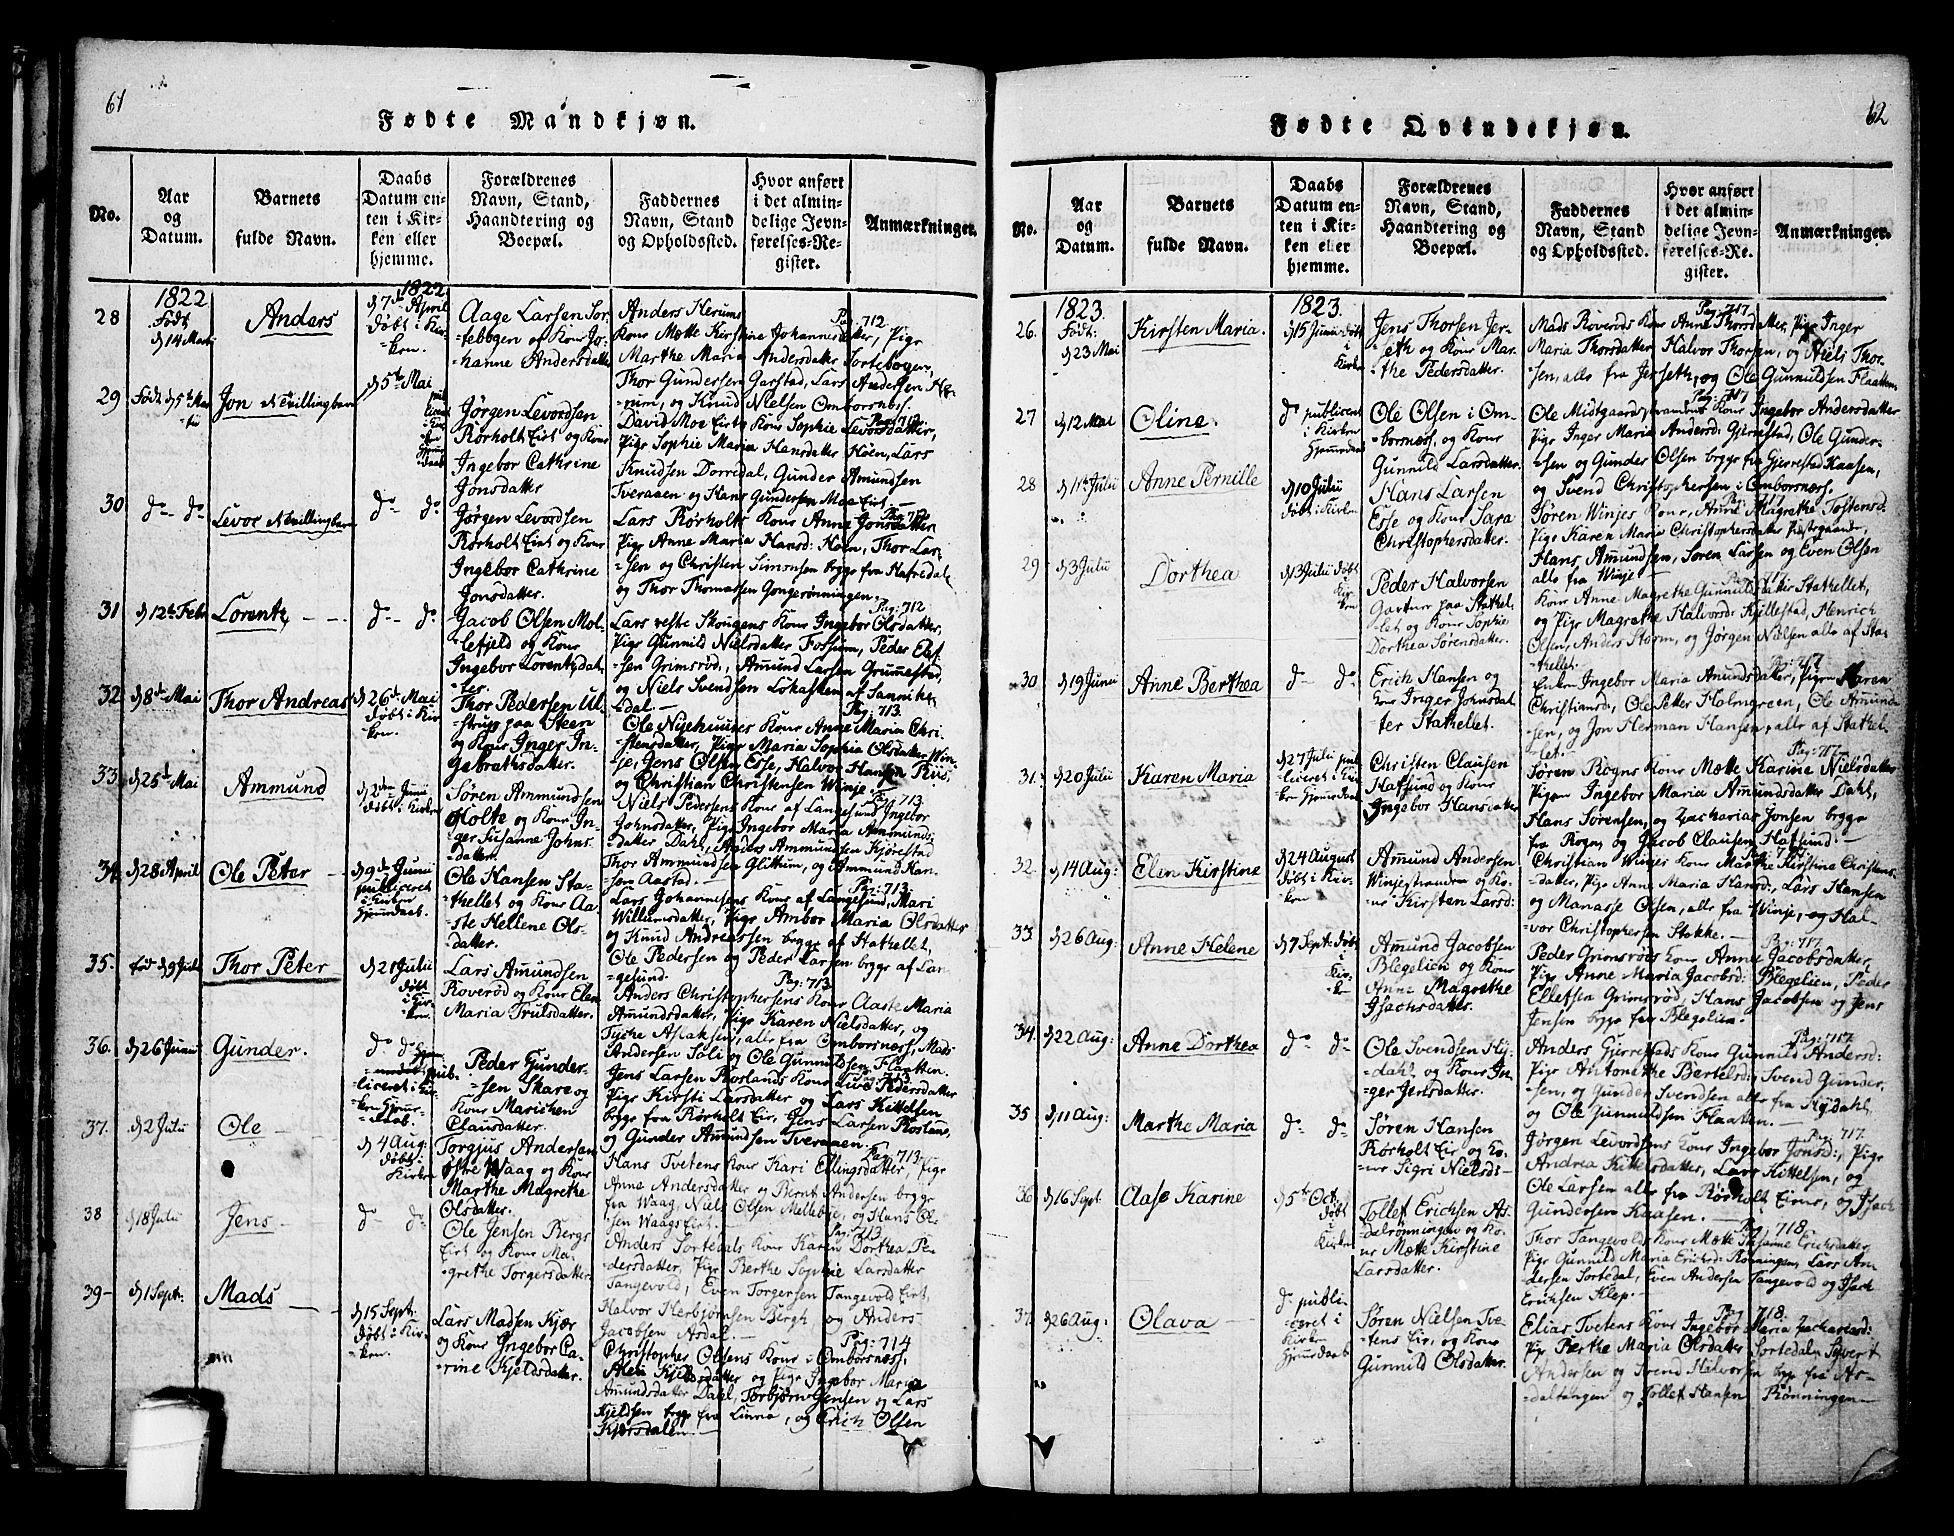 61
Fødte Mandkjøn.
No.
Aar og Datum.
Barnets fulde Navn.
Daabs Datum enten i Kirken eller hjemme.
Forældrenes Navn, Stand, Haandtering og Boepæl.
Faddernes Navn, Stand og Opholdssted.
Hvor anført i det almindelige Jevnførelses-Register.
Anmærkninger.
28
1822
Født
d 14 Marti
Anders
1822
d 7de April
døbt i Kirken.
Aage Larsen Sor-
=tebogen og Kone Jo-
=hanne Andersdatter
Anders Herums
Kone Mætte Kirstine Johannesdatter, Pige
Marthe Maria Andersdatter Sortebogen,
Thor Gundersen Garstad, Lars Andersen He-
=rum, og Knud Nielsen Ombornæs.
Pag: 712
29
Født d 5te Mar-
Jon
d 5te Mai
publiceret i Kirken hjemmedaab
Jørgen Levordsen
Rørholt Eier og Kone
Ingebor Cathrine
Jonsdatter
David Moe Eiers Kone Sophie Levorsdatter,
Pige Sophie Maria Hansdatter Høen, Lars
Knudsen Dorredal, Gunder Amundsen
Tveraaen og Hans Gundersen Moe Eier.
Pag: 712
30
do do
Levor
do do
Jørgen Levordsen
Rørholt Eier og Kone
Ingebor Cathrine
Jonsdatter.
Lars Rørholts Kone Anne Jonsdatter
Pige Anne Maria Hansd: Høen, Thor Lar-
=sen og Christen Simonsen begge fra Hafredal
og Thor Thomassen Gongerønningen.
Pag: 712
31
d 12te Febr
Lorentz
do do
Jacob Olsen Mol-
=lefjeld og Kone
Ingebor Lorentzdat-
=ter.
Lars vestre Skougens Kone Ingebor Olsdatter,
Pige Gunnild Nielsdatter Fossum, Peder Elef-
=sen Grimsrød, Amund Larsen Grummestad
og Niels Svendsen Løkasken af Sannike-
=dal
Pag: 712
32
d 8de Mai
Thor Andreas
d 26de Mai
døbt i Kirken.
Thor Pedersen Ul-
=strup paa Steen
og Kone Inger In-
=gebrethsdatter.
Ole Nyehuuses Kone Anne Maria Chri-
=stensdatter, Pige Maria Sophia Olsdatter Win-
=je, Jens Olsen Esse, Halvor Hansen Riis,
og Christian Christensen Winje.
Pag: 713.
33
d 25de Mai
Ammund
d 2den Juni
døbt i Kirken
Søren Ammundsen
Holte og Kone In-
=ger Susanne Johns-
=datter.
Niels Pedersens Kone af Langesund Ingebor
Johnsdatter, Pige Ingebor Maria Ammunds-
=datter Dahl, Anders Ammundsen Kjørestad
Thor Ammundsen Glittum, og Ammund Han-
=sen Aastad.
Pag 713.
34
d 28 April
Ole Peter
d 9de Junii
publiceret i Kirken hjemmedaab.
Ole Hansen Sta-
=thellet og Kone Aa-
=ste Hellene Ols-
=datter.
Lars Johannesens Kone af Langesund, Mari
Willumsdatter, Pige Ambor Maria Olsdatter
og Knud Andreassen begge af Stathellet,
Ole Pedersen og Peder Larsen begge af Lan-
=gesund.
Pag: 713.
35.
fød d 9 Juli
Thor Peter
d 21 Julii
døbt i Kirken.
Lars Amundsen
Roverød og Kone Elen
Maria Trulsdatter.
Anders Christophersens Kone Aaste Maria
Amundsdatter, Pige Karen Nielsdatter, og
Tyche Aslaksen, alle fra Ombornæs, Mads
Andersen Soli og Ole Gunnildsen Flaatten.
Pag: 713
36.
d 26 Junii
Gunder.
do do
publiceret i Kirken hjemmedaab.
Peder Gunder-
=sen Skare og
Kone Marichen
Clausdatter.
Jens Larsen Roslands Kone Live Pedersdatter
Pige Kirsti Larsdatter og Lars Kittelsen
begge fra Rørholt Eier, Jens Larsen Rosland,
og Gunder Amundsen Tveraaen.
37.
d 2 Julii
Ole
d 4 Aug:
døbt i Kirken
Torgjus Andersen
østre Waag og Kone
Marthe Magrethe
Olsdatter.
Hans Tvetens Kone Kari Ellingsdatter, Pige
Anne Andersdatter og Bernt Andersen begge
fra Waag, Niels Olsen Mellebye, og Hans Ol-
sen Waags Eiet.
Pag: 713
38
d 18 Julii
Jens
do do
Ole Jensen Bergs
Eiet og Kone Ma-
=grethe Torgersdatter.
Anders Sortedals Kone Karen Dorthea Pe-
dersdatter, Pige Berthe Sophie Larsdatter
Tangevold, Even Torgersen Tangevold Eiet,
Halvor Herbjørnsen Bergh, og Anders
Jacobsen Asdal.
Pag: 713
39
d 1 Sept:
Mads
d 15 Sept:
døbt i Kirken.
Lars Madsen Kjær
og Kone Ingebor Ca-
=rine Kjeldsdatter.
Christopher Olsens Kone i Ombornæs,
Alen Kjeldsdatter og Pige Ingebor Maria
Amundsdatter Dahl, Torbjørn Jensen og Lars
Kjeldsen begge fra Linna, og Erich Olsen
Kjærsdalen.
Pag: 714
62
Fødte Qvindekjøn.
No.
Aar og Datum.
Barnets fulde Navn.
Daabs Datum enten i Kirken eller hjemme.
Forældrenes Navn, Stand, Haandtering og Boepæl.
Faddernes Navn, Stand og Opholdssted.
Hvor anført i det almindelige Jevnførelses-Register.
Anmærkninger.
26.
1823.
Født:
d 23 Mai
Kirsten Maria.
1823.
d 15 Juni døbt i Kirken
Jens Thorsen Jer-
=seth og Kone Mar-
=the Pedersdatter.
Mads Røverøds Kone Anne Thorsdatter, Pige Inger
Maria Thorsdatter Halvor Thorsen, og Niels Thor-
=sen, alle fra Jerseth, og Ole Gunnildsen Flaatten.
Pag: 717
27
d 12 Mai
Oline.
do publiceret i Kirken hjemmedaab
Ole Olsen i Om-
=bornæs, og Kone
Gunnild Larsdatter.
Ole Midtgaards Kone Ingebor Andersdatter
Pige Inger Maria Andersd: Gjerrestad, Ole Gunder-
=sen og Gunder Olsen begge fra Gjerrestad Kaasen,
og Svend Christophersen i Ombornæs.
Pag: 717
28
d 11te Julii
Anne Pernille
d 10 Julii
døbt i Kirken
Hans Larsen
Esse og Kone Sara
Christophersdatter.
Søren Winjes Kone, Anne Magrethe Tostensd:
Pige Karen Maria Christophersdatter Præstegaarden
Hans Amundsen, Søren Larsen og Even Olsen
alle fra Winje
Pag: 717
29
d 3 Julii
Dorthea
d 13 Julii døbt i Kirken
Peder Halvorsen
Garver paa Stathel-
=let og Kone Sophie
Dorthea Sørensdatter.
Kone Anne Magrethe Gunnildsdatter Stathellet,
og Pige Magrethe Halvorsd: Kjellestad, Henrich
Olsen, Anders Storm, og Jørgen Nielsen alle af Sta-
thellet.
30
d 19 Junii
Anne Berthea
do do
Erich Hansen og
Kone Inger Johnsdat-
ter Stathellet.
Enken Ingebor Maria Amundsdatter, Pigen Karen
Christiansd:, Ole Petter Halmgreen, Ole Amund-
=sen, og Jon Herman Hansen, alle af Stathel-
let.
Pag: 717
31.
d 20 Julii
Karen Maria
d 27 Julii publiceret i Kirken hjemmedaab
Christen Clausen
Hafsund og Kone
Ingebor Hansdatter
Søren Rogns Kone Mætte Karine Nielsdatter
Pigen Ingebor Maria Amundsdatter Dahl,
Hans Sørensen, og Zacharias Jonsen begge
fra Rogn, og Jacob Clausen Hafsund.
Pag: 717.
32.
d 14 Aug:
Elen Kirstine
d 24 August
døbt i Kirken
Amund Andersen
Winjestranden og Ko-
=ne Kirsten Larsd:
Christian Winjes Kone Marthe Kirstine Christens-
=datter, Pige Anne Maria Hansd:, Lars Hansen
og Manasse Olsen, alle fra Winje, og Hal-
=vor Christophersen Stokke.
33.
d 26 Aug:
Anne Helene
d 7 Sept: døbt i Kirken
Amund Jacobsen
Blegelien og Kone
Anne Magrethe
Isachsdatter.
Peder Grimsrøds Kone Anne Jacobsdatter,
Pige Anne Maria Jacobsd: Blegelien, Peder
Ellefsen Grimsrød, Hans Jacobsen og Jens
Jensen begge fra Blegelien.
Pag: 717.
34.
d 22 Aug:
Anne Dorthea
do do
Ole Svendsen Hy-
=dahl og Kone In-
ger Jensdatter.
Anders Gjerrestads Kone Gunnild Andersd:
Pige Antonethe Bertelsd:, Svend Gunder-
=sen, og Gunder Svendsen alle fra Hydahl,
og Ole Gunnildsen Flaatten.
Pag: 717.
35
d 11 Aug:
Marthe Maria
do do
Søren Hansen
Rørholt Eier og Ko-
=ne Sigri Nielsd:
Jørgen Levordsens Kone Ingebor Jonsd:, Pige
Andrea Kittelsdatter, Lars Kittelsen, og
Ole Larsen alle fra Rørholt Eierne, og Isach
Gundersen Kaasen.
Pag: 717.
36
d 16 Sept:
Aase Karine
d 5te Oct:
døbt i Kirken
Tollef Erichsen As-
=dalrønningen og Ko-
ne Mætte Kirstine
Larsdatter.
Thor Tangevolds Kone Mætte Susanne Erichsdatter,
Pige Gunnild Maria Erichsd: Rønningen, Lars An-
dersen Sortedal, Even Andersen Tangevold og Isach
Ericksen Klep.
Pag: 718.
37.
d 26 Aug:
Olava
do publiceret i Kirken hjemmedaab
Søren Nielsen Tve-
=tens Eie, og Kone
Gunnild Olsdatter.
Elias Tvetens Kone Ingebor Maria Zachariasd:
Pige Berthe Maria Olsdatter Sortedal, Syvert
Andersen og Svend Halvorsen begge fra As-
=daltangen og Tollef Hansen Rønningen
Pag: 718.